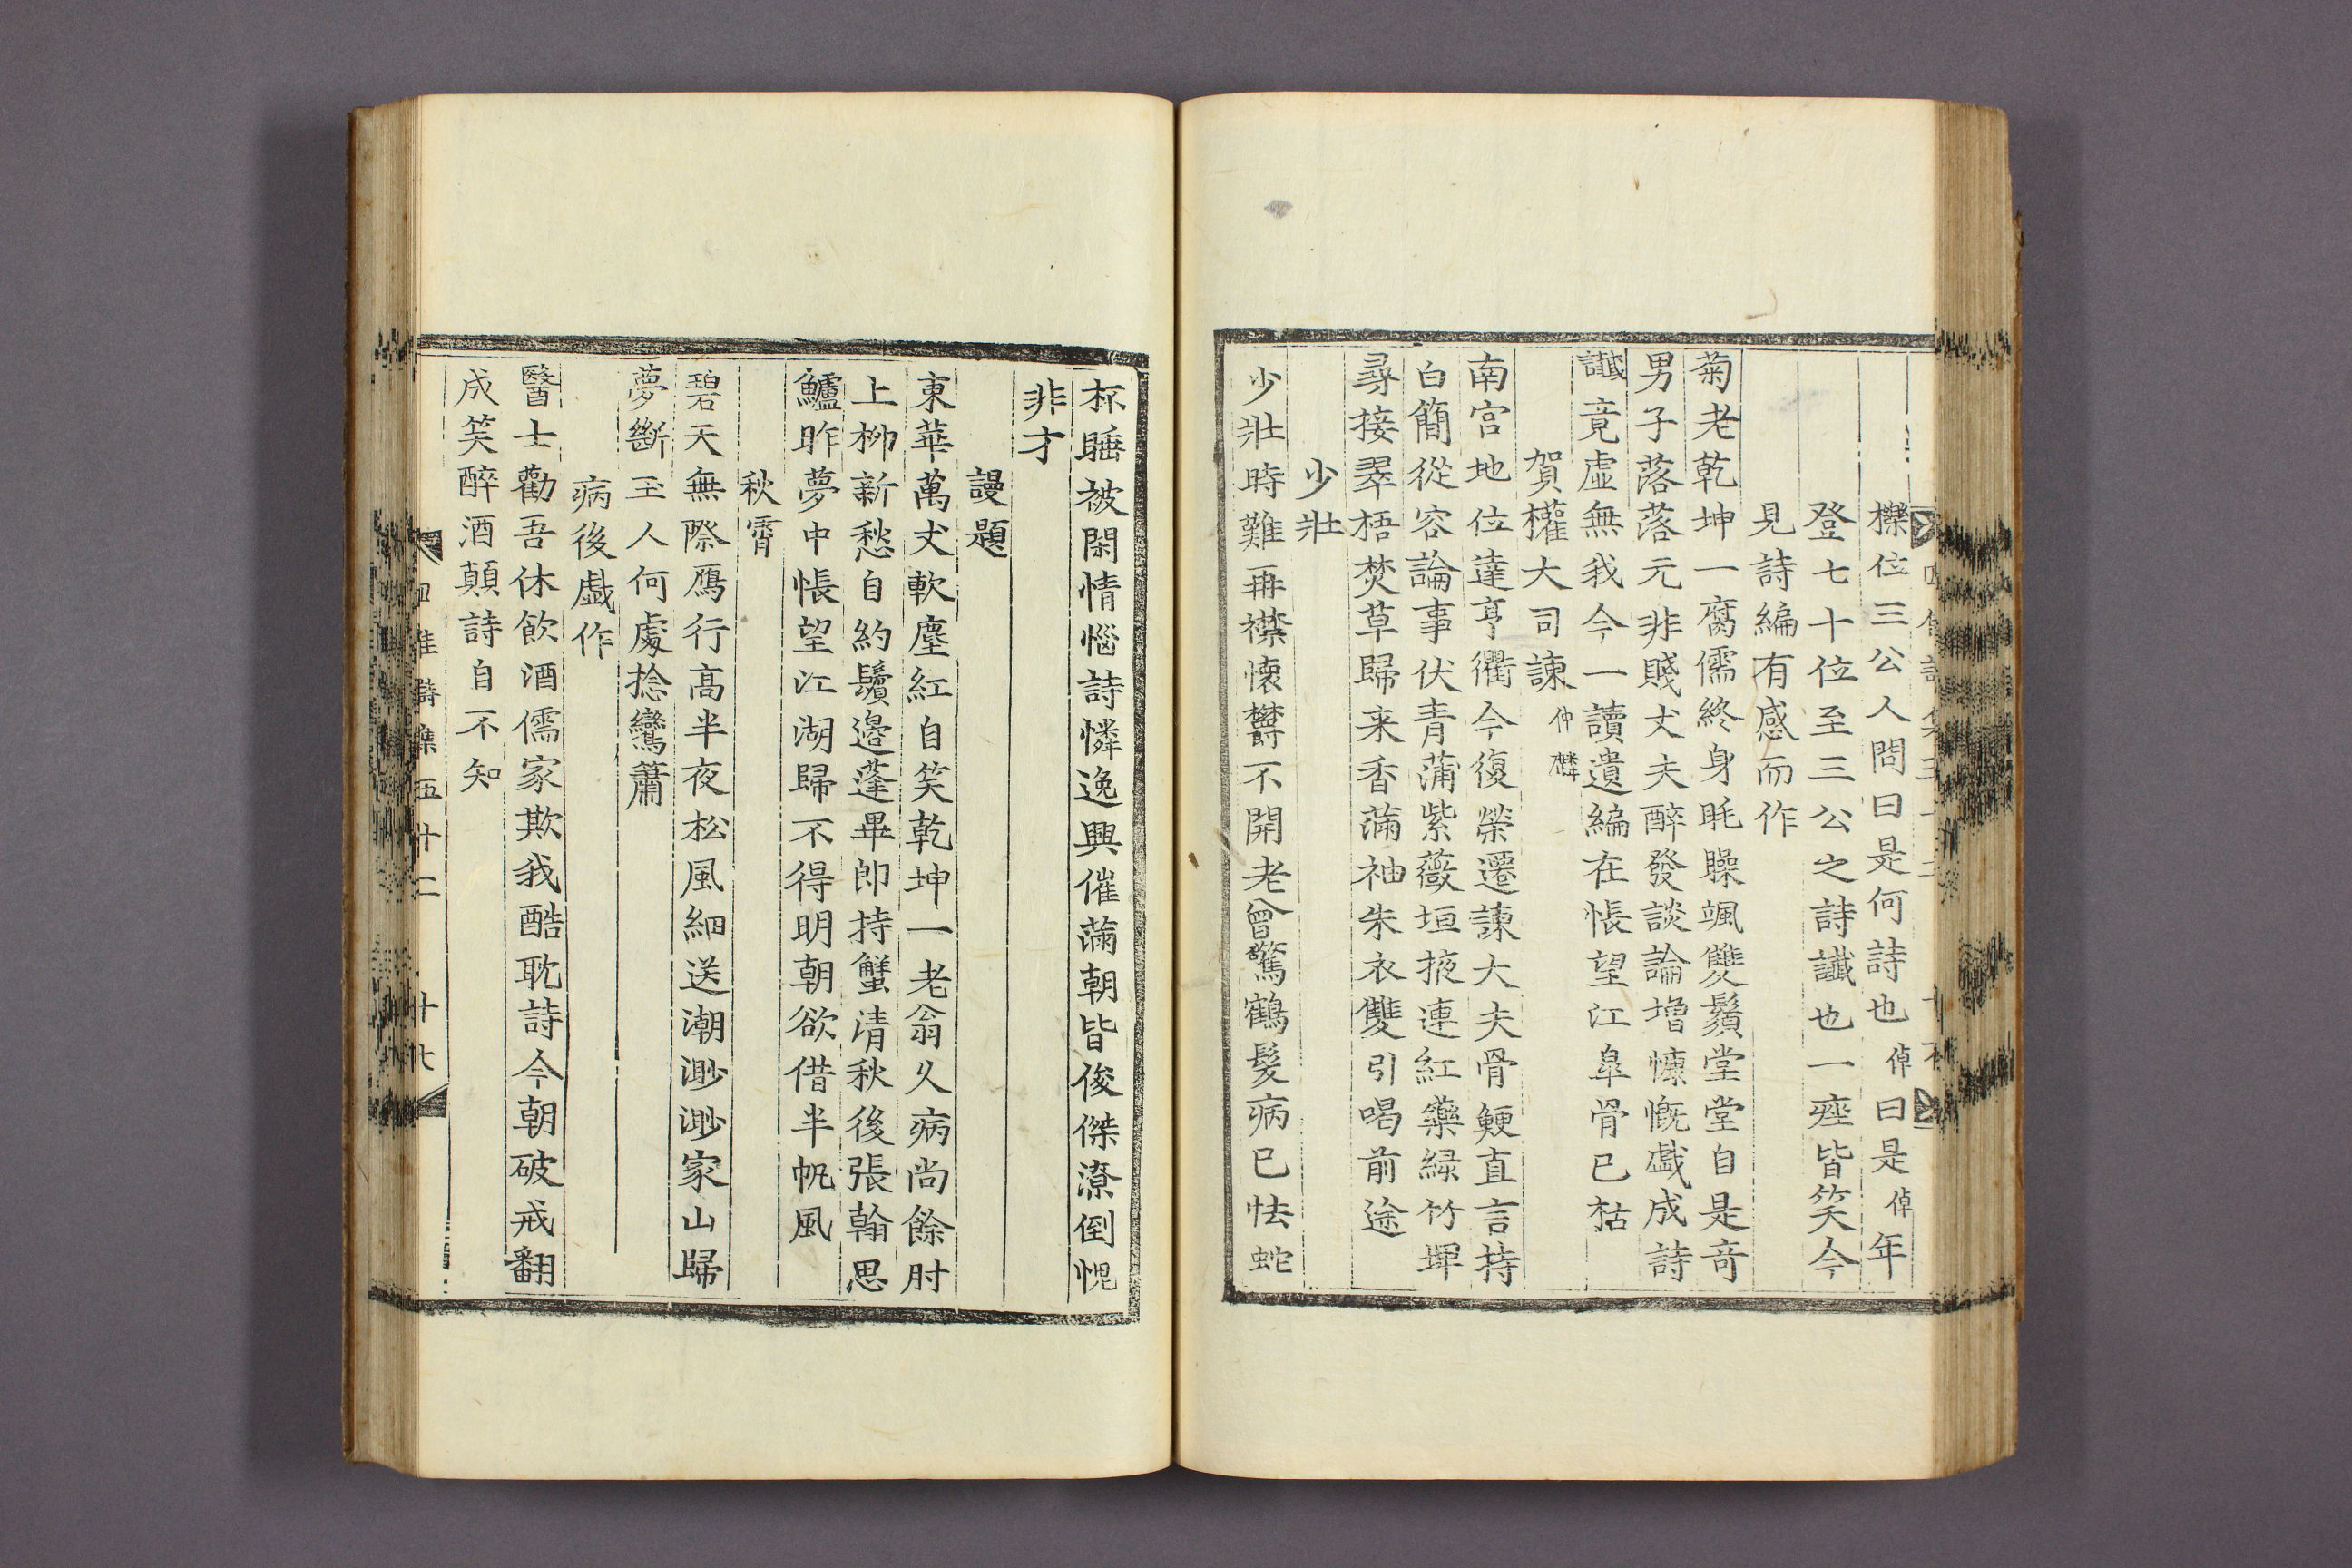 檪位三公人問曰是何詩也倬曰是倬年
登七十位至三公之詩讖也一座皆笑今
見詩編有感而作
菊老乾坤一腐儒終身眊矂颯雙鬚堂堂自是奇
男子落落元非賤丈夫醉發談論增慷慨戱成詩
讖竟虛無我今一讀遺編在悵望江皐骨已枯
賀權大司諫仲麟
南宮地位達亨衢今復榮遷諫大夫骨鯁直言持
白簡從容論事伏青蒲紫薇垣掖連紅藥緑竹墀
尋接翠梧焚草歸来香滿袖朱衣雙引喝前途
少壯
少壯時難再襟懷欝不開老曾驚鶴髪病已怯蛇
杯睡被閑情惱詩憐逸興催滿朝皆俊傑潦倒愧
非才
謾題
東華萬丈軟塵紅自笑乾坤一老翁久病尚餘肘
上柳新愁自約鬢邊蓬畢卽持蟹清秋後張翰思
鱸昨夢中悵望江湖歸不得明朝欲借半帆風
秋霄
碧天無際鴈行高半夜松風細送潮渺渺家山歸
夢斷玉人何處捻鸞簫
病後戱作
醫士勸吾休飮酒儒家欺我酷耽詩今朝破戒翻
成笑醉酒顛詩自不知
四佳詩集五十二 十七